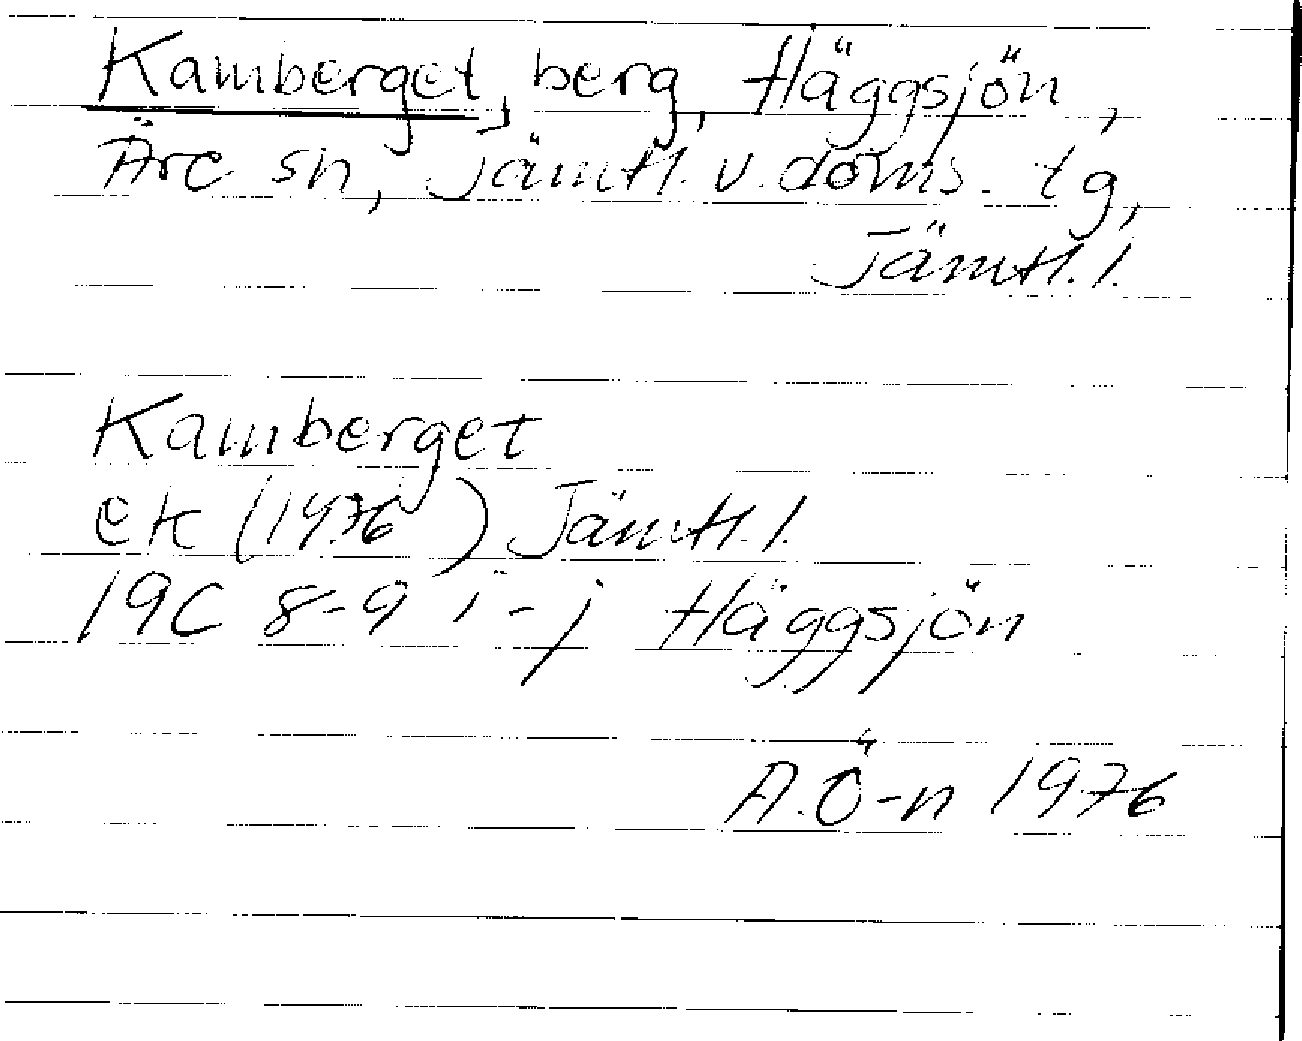 Kamberget, berg, Häggsjön,
Åre sn, Jämtl. v. doms. tg,
Jämtl. l.
Kamberget
ek (1976) Jämtl. l.
19C 8-9 i-j Häggsjön
A.Ö-n 1976